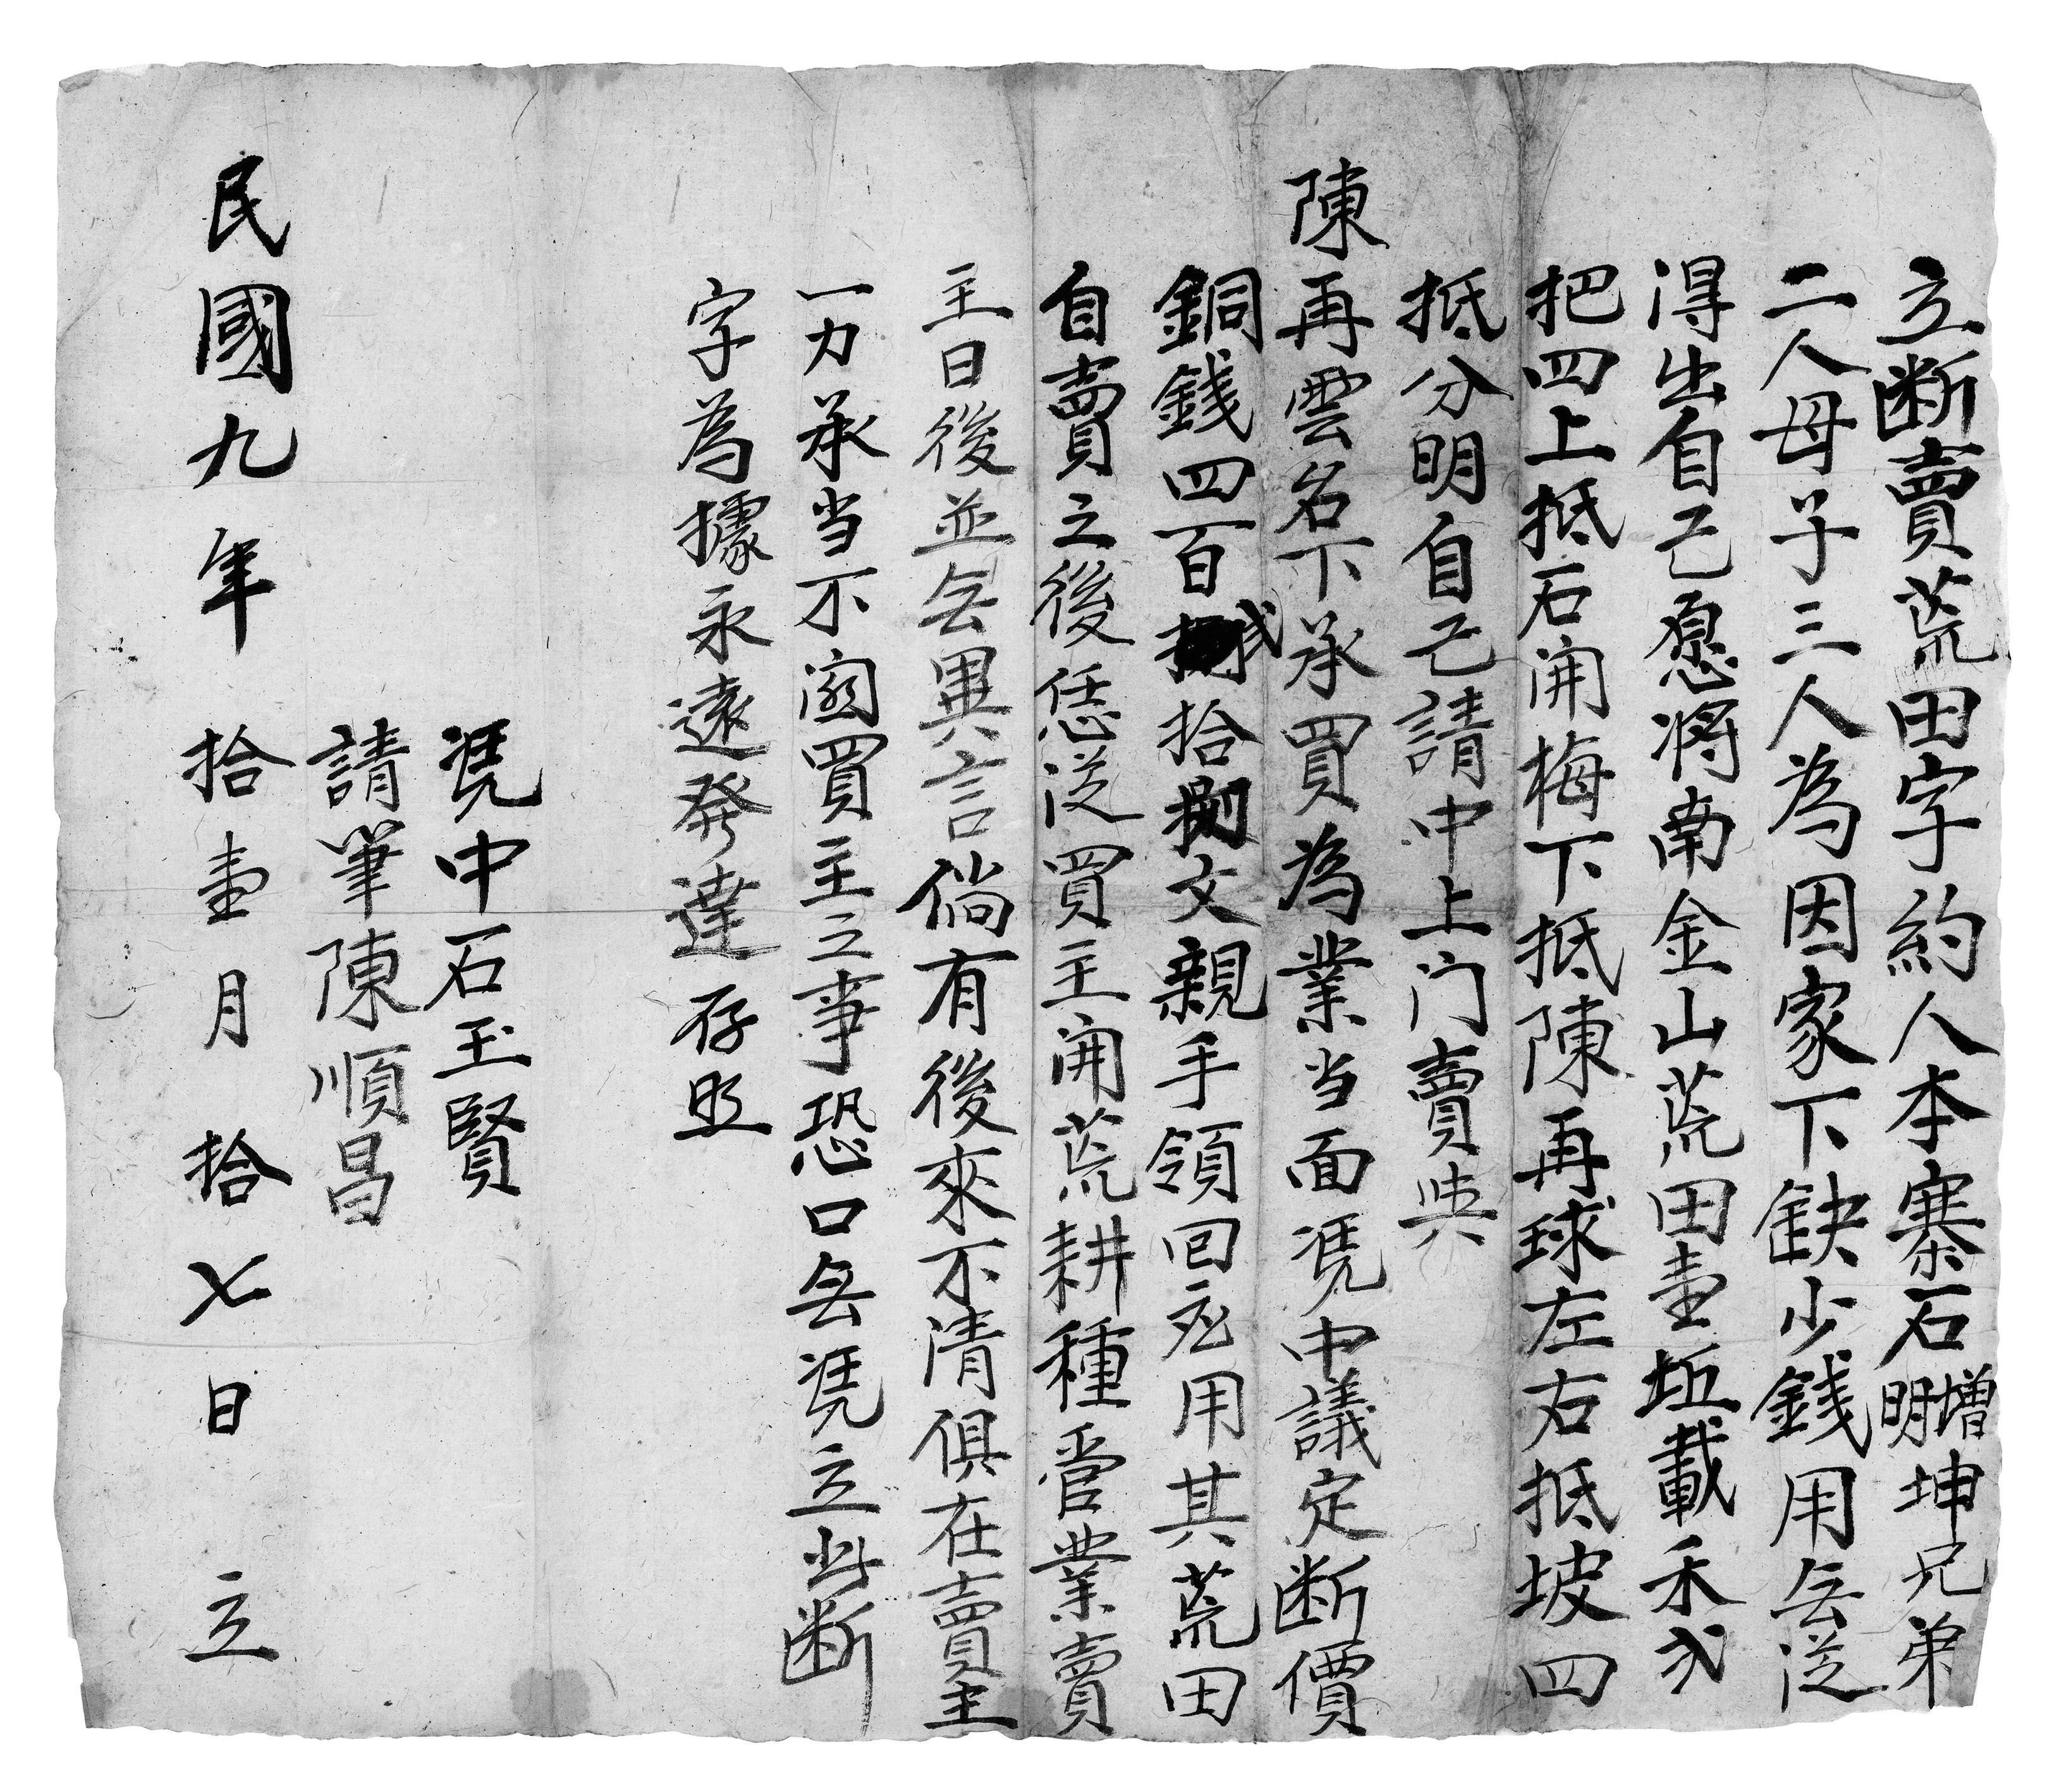 立断賣荒田字約人本寨石增明坤兄弟
二人母子三人為因家下缺少錢用無從
得出自己愿將南金山荒田壹坵載禾弍
把四上抵石開梅下抵陳再球左右抵坡四
抵分明自己請中上门賣與
陳再雲名下承買為業当面凭中議定断價
銅錢四百弍拾捌文親手領回応用其荒田
自賣之後恁從買主開荒耕種管業賣
主日後並無異言倘有後來不清俱在賣主
一力承当不関買主之事恐口無凭立此断
字為據永遠發達 存照
凭中石玉賢
請筆陳順昌
民國九年拾壹月拾七日 立